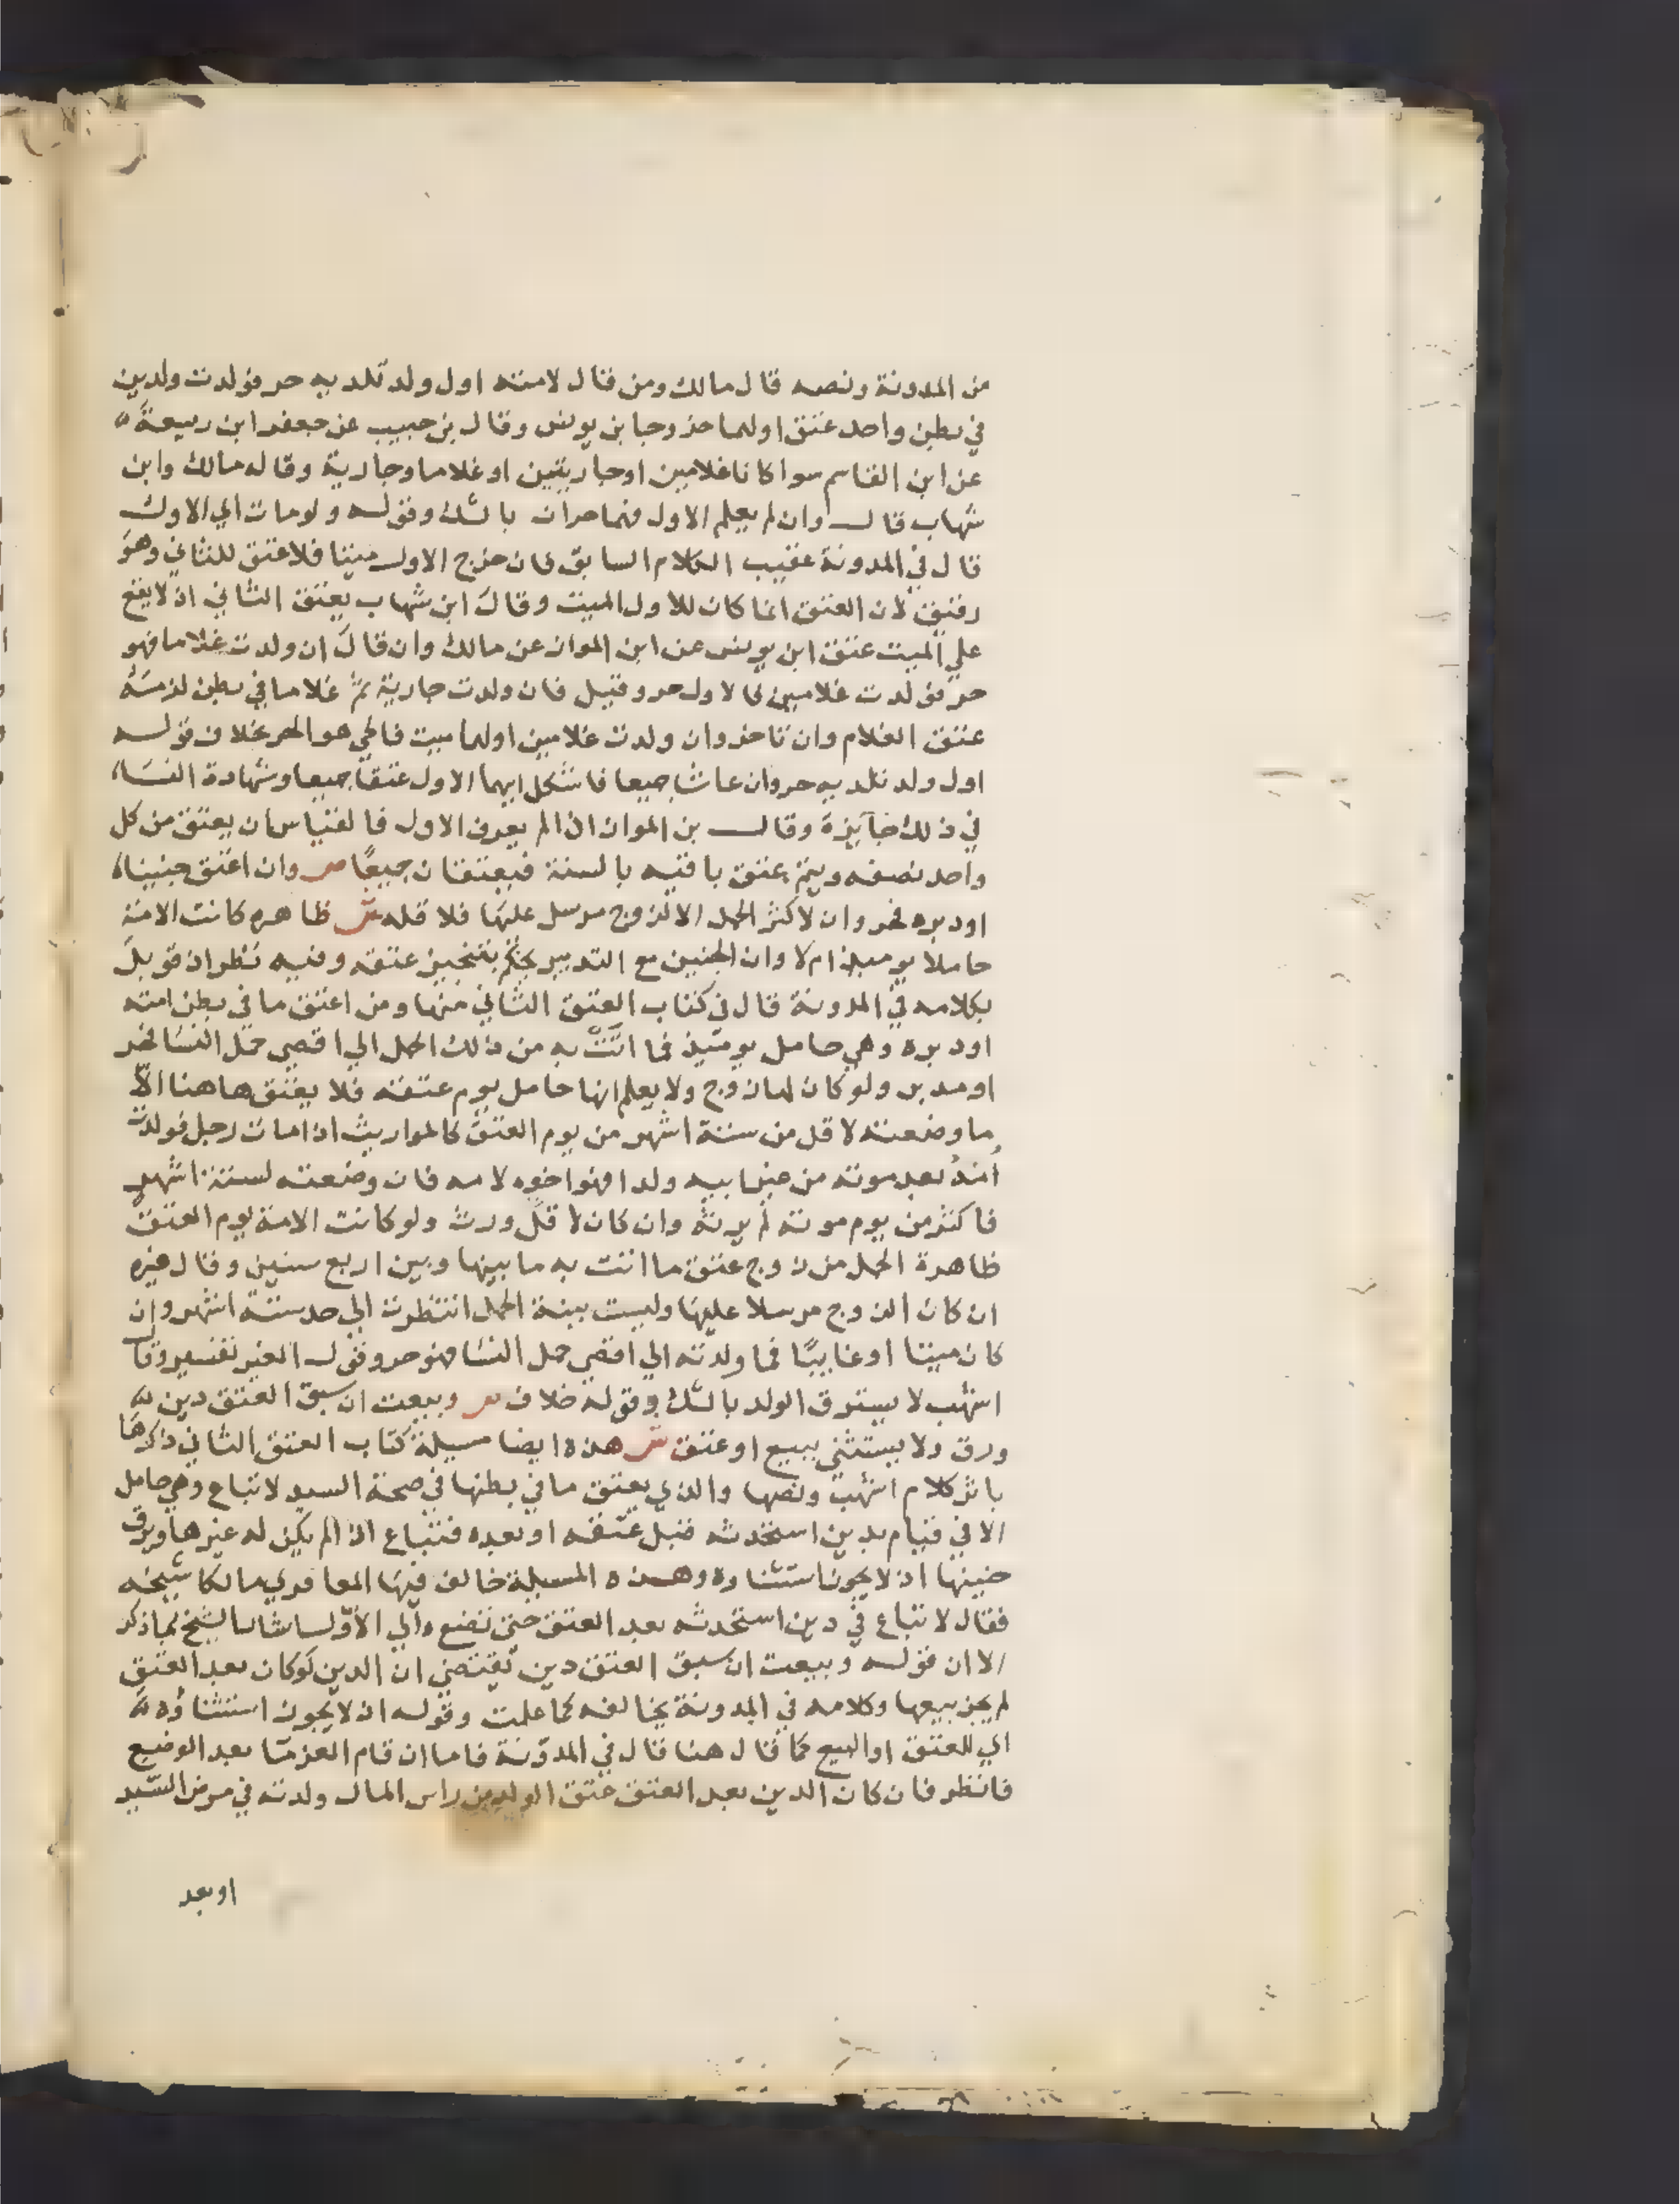 من المدونة ونصه قال مالك ومن قال لامته اول ولد تلديه حر فولدت ولدين
في بطن واحد عتق اولهما خروجا بن يونس وقال بن حبيب عن جعفر ابن ربيعة
عن ابن القاسم سوا كانا غلامين او جاريتين او غلاما وجارية وقاله مالك وابن
شهاب قال وان لم يعلم الاول فهما حران بالشك وقوله ولو مات اي الاول
قال في المدونة عقيب الكلام السابق فان خرج الاول ميتا فلا عتق للثاني وهو
رقيق لان العتق انما كان للاول الميت وقال ابن شهاب يعتق الثاني اذ لا يقع
علي الميت عتق ابن يونس عن ابن المواز عن مالك وان قال ان ولدت غلاما فهو
حر فولدت غلامين فالاول حر وقيل فان ولدت جارية ثم غلاما في بطن لزمه
عتق الغلام وان تاخر وان ولدت غلامين اولهما ميت فالحي هو الحر بخلاف قوله
اول ولد تلديه حر وان عاشا جميعا فاشكل ايهما الاول عتقا جميعا وشهادة النساء
في ذلك جايزة وقال بن المواز اذا لم يعرف الاول فالقياس ان يعتق من كل
واحد نصفه ويتم عتق باقيه بالسنة فيعتقان جميعا ص وان اعتق جنينا
او دبره فحر وان لاكثر الحمل الا لزوج مرسل عليها فلاقله ش ظاهره كانت الامة
حاملا يوميذ ام لا وان الجنين مع التدبير يحكم بتنجيز عتقه وفيه نظر ان قوبل
بكلامه في المدونة قال في كتاب العتق الثاني منها ومن اعتق ما في بطن امته
او دبره وهي حامل يوميذ فما اتت به من ذلك الحمل الي اقصي حمل النسا فحر
او مدبر ولو كان لها زوج ولا يعلم انها حامل يوم عتقه فلا يعتق هاهنا الا
ما وضعته لاقل من ستة اشهر من يوم العتق كالمواريث اذا مات رجل فولدت
امه بعد موته من غير ابيه ولدا فهو اخوه لامه فان وضعته لستة اشهر
فاكثر من يوم موته لم يرثه وان كان لاقل ورث ولو كانت الامة يوم العتق
ظاهرة الحمل من زوج عتق ما اتت به ما بينها وبين اربع سنين وقال غيره
ان كان الزوج مرسلا عليها وليست بينة الحمل انتظرت الي حد ستة اشهر وان
كان ميتا او غايبًا فما ولدته الي اقصي حمل النسا فهو حر وقول الغير تفسير وقال
اشهب لا يسترق الولد بالشك وقوله خلاف ص وبيعت ان سبق العتق دين
ورق ولا يستثني ببيع او عتق ش هذه ايضا مسيلة كتاب العتق الثاني ذكرها
باثر كلام اشهب ونصها والذي يعتق ما في بطنها في صحة السيد لا تباع وهي حامل
الا في قيام بدين استحدثه قبل عتقه او بعده فتباع اذا لم يكن له غيرها ويرق
جنينها اذ لا يجوز استثناوه وهذه المسيلة خالف فيها المعافري مالكا شيخه
فقال لا تباع في دين استحدثه بعد العتق حتى تضع والي الاول اشار الشيخ بما ذكر
الا ان قوله وبيعت ان سبق العتق دين يقتضي ان الدين لو كان بعد العتق
لم يجز بيعها وكلامه في المدونة يخالفه كما علمت وقوله اذ لا يجوز استثناؤه
اي للعتق او البيع كما قال هنا قال في المدونة فاما ان قام الغرما بعد الوضع
فانظر فان كان الدين بعد العتق عتق الولد من راس المال ولدته في مرض السيد
او بعد